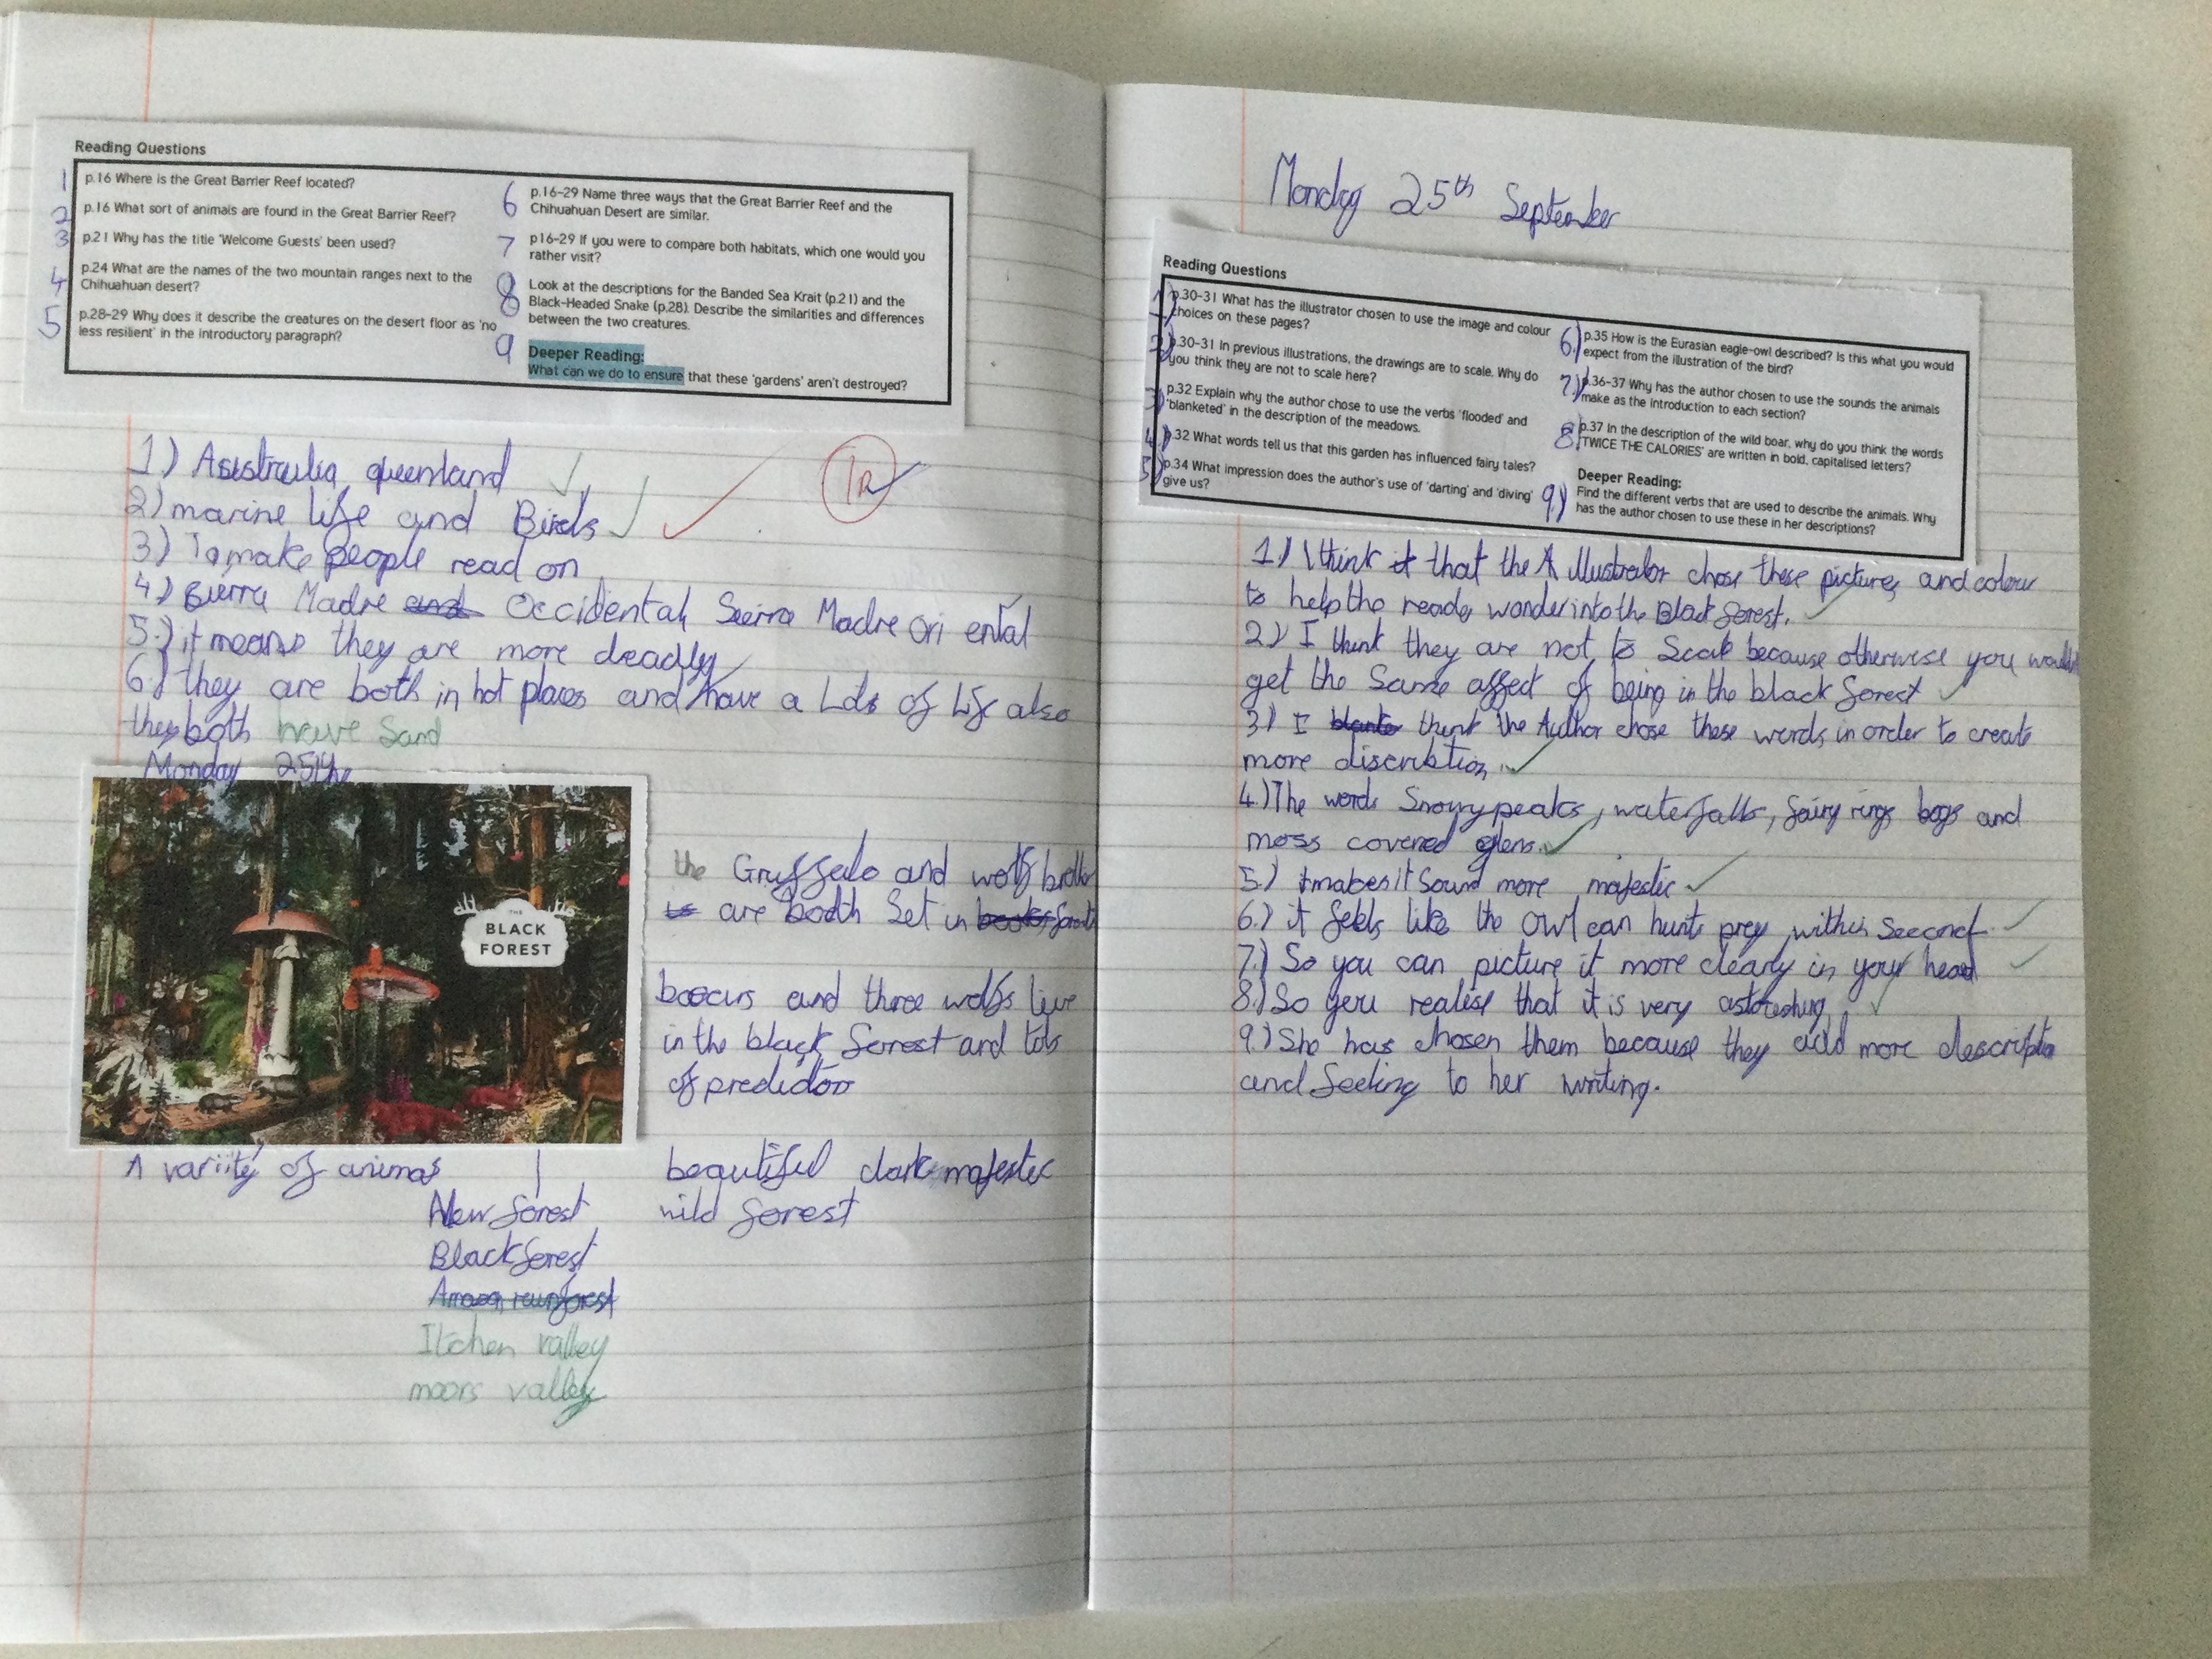 Reading Questions
1 p.16 Where is the Great Barrier Reef located?
2 p.16 What sort of animals are found in the Great Barrier Reef?
3 p.21 Why has the title 'Welcome Guests' been used?
4 p.24 What are the names of the two mountain ranges next to the
Chihuahuan desert?
5 p.28-29 Why does it describe the creatures on the desert floor as 'no
less resilient' in the introductory paragraph?
6 p.16-29 Name three ways that the Great Barrier Reef and the
Chihuahuan Desert are similar.
7 p16-29 If you were to compare both habitats, which one would you
rather visit?
8 Look at the descriptions for the Banded Sea Krait (p.21) and the
Black-Headed Snake (p.28). Describe the similarities and differences
between the two creatures.
9 Deeper Reading:
What can we do to ensure that these 'gardens' aren't destroyed?
1) queenland
2) marine life and Birds
3) To make people read on
4) Sierra Madre Occidental, Sierra Madre ori ental
5.) it means they are more deadly
6.) they are both in hot places and have a Lots of Life also
they both have Sand
Monday 25th
THE
BLACK
FOREST
the Gruffalo and wolf brother
are both Set in
and three wolfs live
in the black forest and lots
of preditors
A variity of animas
beautiful dark majestic
wild forest
New forest
Black forest
Amazon rainforest
Itchen valley
moors valley
Monday 25th September
Reading Questions
1) p.30-31 What has the illustrator chosen to use the image and colour
choices on these pages?
2) p.30-31 In previous illustrations, the drawings are to scale. Why do
you think they are not to scale here?
3) p.32 Explain why the author chose to use the verbs 'flooded' and
'blanketed' in the description of the meadows.
4) p.32 What words tell us that this garden has influenced fairy tales?
5) p.34 What impression does the author's use of 'darting' and 'diving'
give us?
6.) p.35 How is the Eurasian eagle-owl described? Is this what you would
expect from the illustration of the bird?
7.) p.36-37 Why has the author chosen to use the sounds the animals
make as the introduction to each section?
8. p.37 In the description of the wild boar, why do you think the words
'TWICE THE CALORIES' are written in bold, capitalised letters?
Deeper Reading:
9.) Find the different verbs that are used to describe the animals. Why
has the author chosen to use these in her descriptions?
1.) I think that the illustrator chose these pictures and colour
to help the reader wonder into the Black forest.
2.) I think they are not to Scale because otherwise you wouldn't
get the Same affect of being in the black forest
3.) I think the Author chose these words in order to create
more discribtion
4.) The words Snowy peaks, waterfalls, fairy rings bogs and
moss covered glens.
5.) it makes it Sound more majestic
6.) it feels like the owl can hunt prey within Second
7.) So you can picture it more clearly in your head
8.) So you realise that it is very
9.) She has chosen them because they add more
and feeling to her writing.